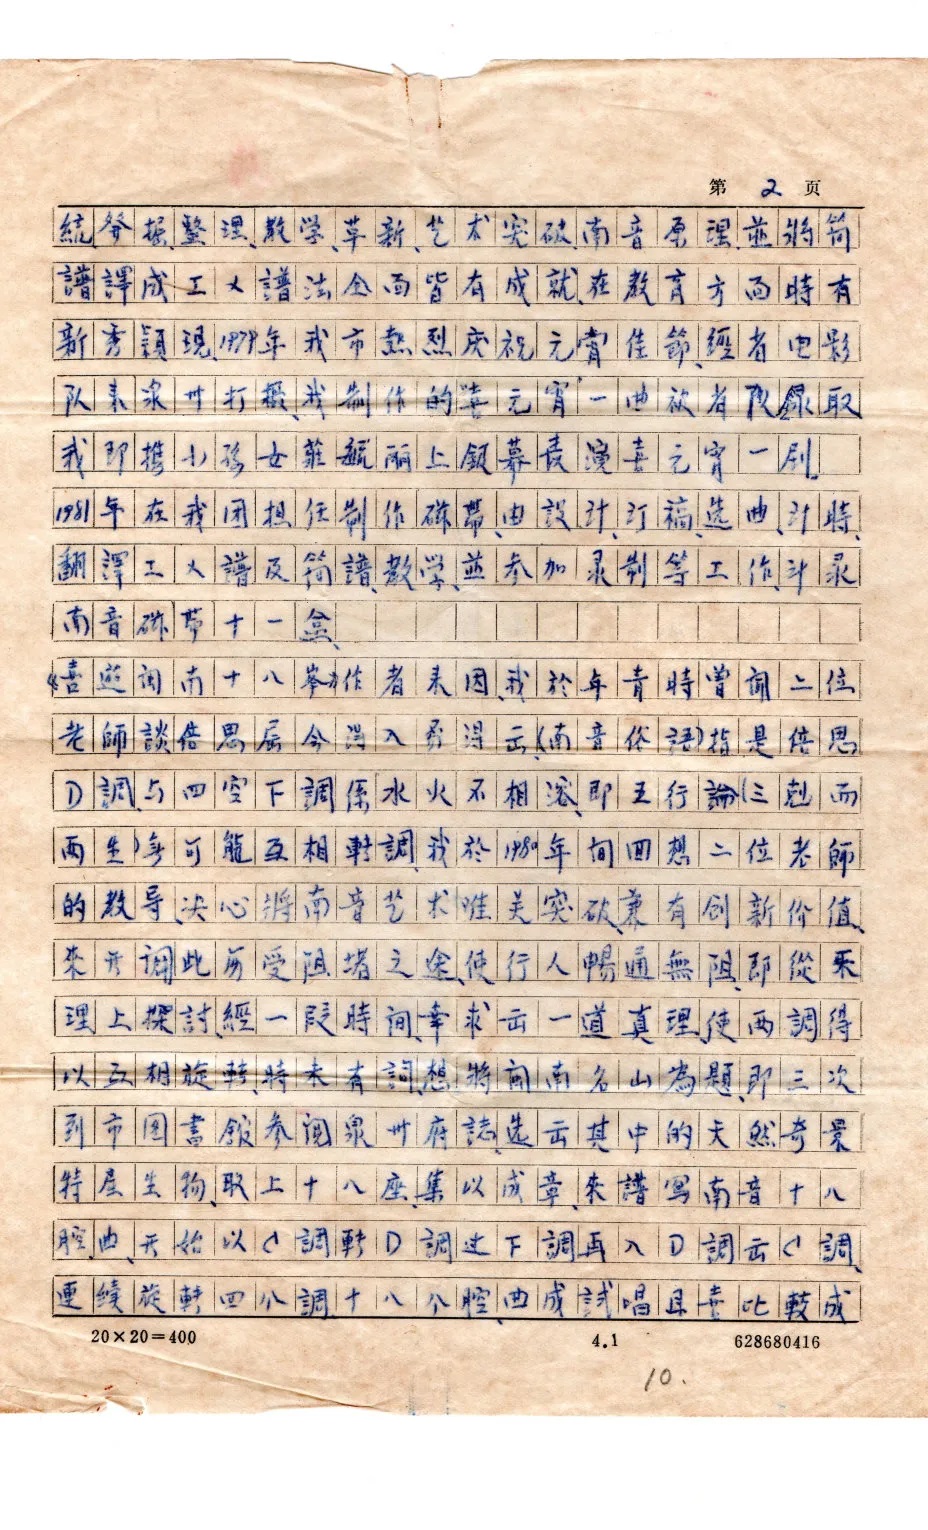 第 2 页
統發掘、整理、教学、革新、艺术突破、南音原理、並將简
譜譯成工乂譜法全面皆有成就、在教育方面時有
新秀穎現、1979年我市熱烈庆祝元宵佳節、經省电影
队来泉州打摄、我制作的喜元宵一曲被省队录取
我即携小孫女莊毓丽上銀幕表演喜元宵一剧。
1981年在我团担任制作磁帶、由設計、订稿、选曲、计時、
翻譯工乂譜及简譜、教学、並参加录制等工作、计录
南音磁帶十一盒
《喜遊閩南十八峯》作者来因、我於年青時曾聞二位
老師談倍思屈今得入勇得出(南音俗語)指是倍思
D調、与四空下調係水火不相溶、即五行論(三剋而
两生)無可能互相轉調、我於1980年间回想二位老師
的教导、决心將南音艺术唯美突破、兼有创新价值、
來开調此历受阻堵之途、使行人暢通無阻、即從乐
理上探討、經一段時间、幸求出一道真理、使两調得
以互相旋轉、時未有詞、想將闽南名山為題、即三次
到市图書館参阅泉州府誌、选出其中的天然奇景
特産生物、取上十八座、集以成章、來譜寫南音十八
腔曲、开始以C調轉D調过下調再入D調出C調、
連續旋轉四个調十八个腔、曲成試唱且喜比較成
20×20=400 4.1 628680416
10.